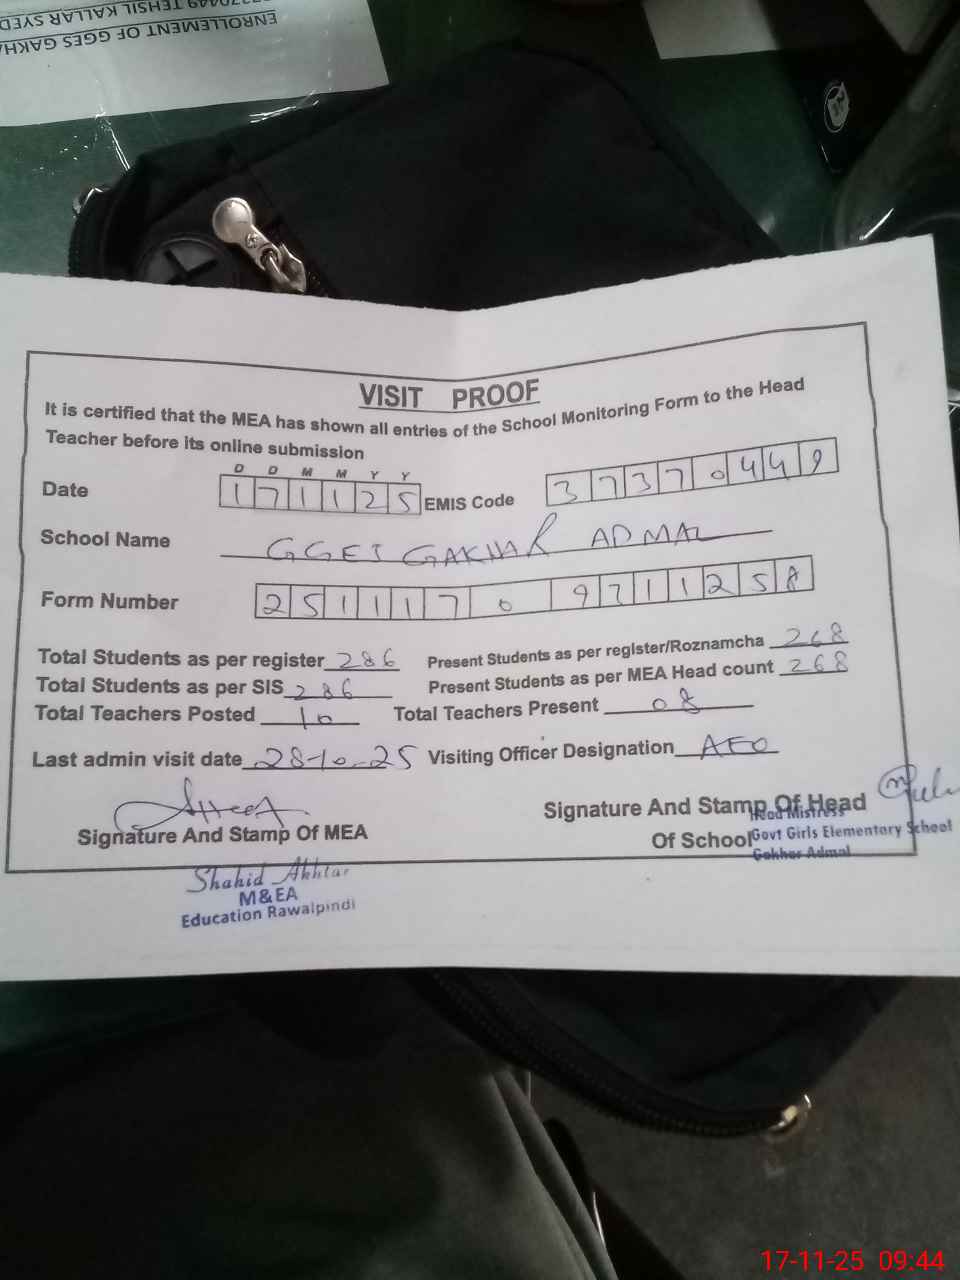 ENROLLEMENT OF GGES GAKHA
TEHSIL KALLAR SYED
VISIT PROOF
It is certified that the MEA has shown all entries of the School Monitoring Form to the Head
Teacher before its online submission
D D M M Y Y
Date 171125 EMIS Code 37370449
School Name GGES GAKHAR ADMAL
Form Number 25111709711258
Total Students as per register 286 Present Students as per register/Roznamcha 268
Total Students as per SIS 286 Present Students as per MEA Head count 268
Total Teachers Posted 10 Total Teachers Present 08
Last admin visit date 28-10-25 Visiting Officer Designation AEO
Signature And Stamp Of MEA
Signature And Stamp Of Head
Of School
Head Mistress
Govt Girls Elementary School
Gakhar Admal
Shahid Akhtar
M&EA
Education Rawalpindi
17-11-25 09:44